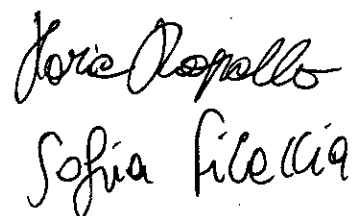 Ilaria Rapallo
Sofia Filaccia